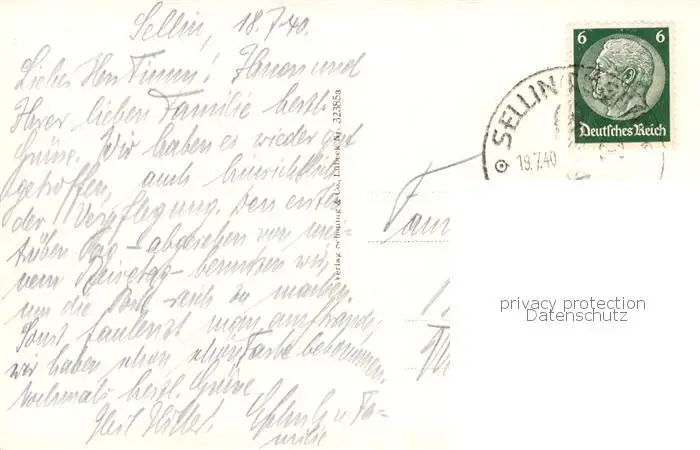 Sellin, 18.7.40.
Liebes Herr Timm! Ihnen und
Ihrer lieben Familie herzl.
Grüße. Wir haben es wieder gut
getroffen, auch hinsichtlich
der Verpflegung. Den ersten
trüben Tag – abgesehen von
Reisetag – benutzen wir,
um die Post zu machen.
Sonst faulenzt man am Strande,
wir haben schon Farbe bekommen.
Nochmals herzl. Grüße
Fa-
milie
Verlag Schöning & Co., Lübeck Nr. 32385a
6 6
Deutsches Reich
SELLIN
19.7.40
Fam
privacy protection
Datenschutz